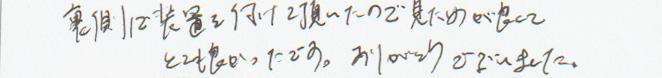 裏側に装置を付けて頂いたので見ためが良くて
とても良かったです。ありがとうございました。